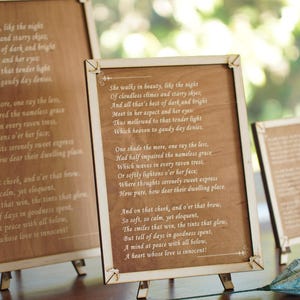 like the night
and starry skies;
of dark and bright
and her eyes:
that tender light
gaudy day denies.
more, one ray the less,
the nameless grace
in every raven tress,
o'er her face;
serenely sweet express
how dear their dwelling place.
cheek, and o'er that brow,
calm, yet eloquent,
that win, the tints that glow,
of days in goodness spent,
peace with all below,
whose love is innocent!
She walks in beauty, like the night
Of cloudless climes and starry skies;
And all that's best of dark and bright
Meet in her aspect and her eyes:
Thus mellowed to that tender light
Which heaven to gaudy day denies.
One shade the more, one ray the less,
Had half impaired the nameless grace
Which waves in raven tress,
Or softly lightens o'er her face;
Where thoughts serenely sweet express
How pure, how dear their dwelling place.
And on that cheek, and o'er that brow,
So soft, so calm, yet eloquent,
The smiles that win, the tints that glow,
But tell of days in goodness spent,
A mind at peace with all below,
A heart whose love is innocent!